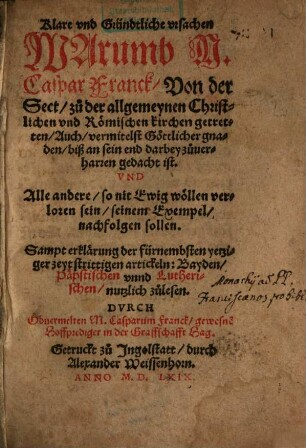 Klare vnd Gründtliche vrsachen
WArumb M.
Caspar Franck/ Von der
Sect/ zů der allgemeynen Christ-
lichen vnd Römischen kirchen getret-
ten/ Auch/ vermitelst Göttlicher gna-
den/ biß an sein end darbey zůuer-
harren gedacht ist.
VND
Alle andere/ so nit Ewig wöllen ver-
loren sein/ seinem Exempel/
nachfolgen sollen.
Sampt erklärung der fürnembsten yetzi-
ger zeyt strittigen artickeln: Bayden/
Päpstischen vnnd Lutheri-
schen/ nutzlich zůlesen.
DVRCH
Obuermelten M. Casparum Franck/ gewesnē
Hoffprediger in der Graffschafft Hag.
Getruckt zů Ingolstatt/ durch
Alexander Weissenhorn.
ANNO M. D. LXIX.
Monachij ad PP.
Franciscanos